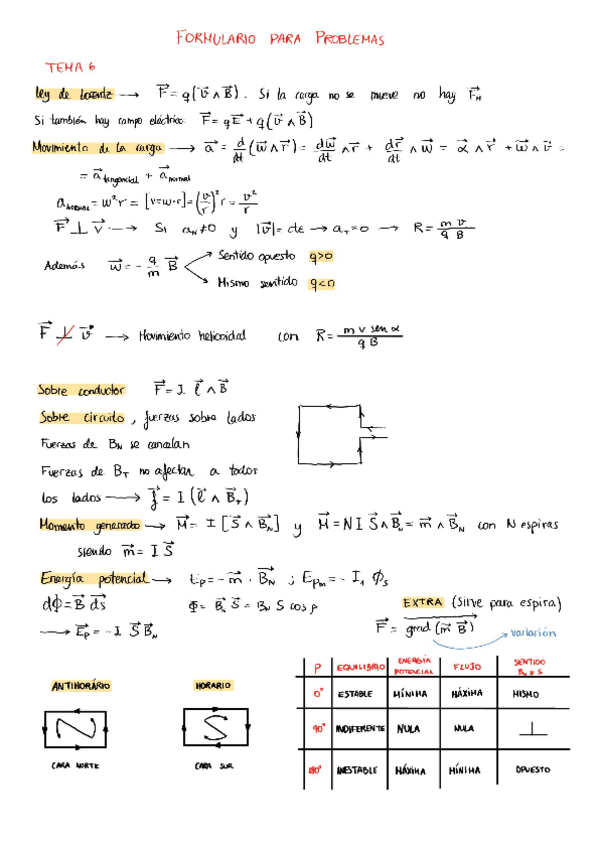 FORMULARIO PARA PROBLEMAS
TEMA 6
Ley de Lorentz → F⃗ = q(v⃗ ∧ B⃗). Si la carga no se mueve no hay F⃗_M
Si también hay campo eléctrico: F⃗ = qE⃗ + q(v⃗ ∧ B⃗)
Movimiento de la carga → a⃗ = d/dt (w⃗ ∧ r⃗) = dw⃗/dt ∧ r⃗ + dr⃗/dt ∧ w⃗ = α⃗ ∧ r⃗ + w⃗ ∧ v⃗ =
= a⃗ tangencial + a⃗ normal
a normal = w² r = [v = w·r] = (v/r)² r = v²/r
F⃗ ⊥ v⃗ → Si a_N ≠ 0 y |v⃗| = cte → a_T = 0 → R = m v / q B
Además w⃗ = - q/m B⃗
Sentido opuesto q>0
Mismo sentido q<0
F⃗ ⊥̸ v⃗ → Movimiento helicoidal con R = m v sen α / q B
Sobre conductor F⃗ = I · ℓ⃗ ∧ B⃗
Sobre circuito, fuerzas sobre lados
Fuerzas de B_N se cancelan
Fuerzas de B_T no afectan a todos
los lados → f⃗ = I (ℓ⃗ ∧ B⃗_T)
Momento generado → M⃗ = I [S⃗ ∧ B⃗_N] y M⃗ = N I S⃗ ∧ B⃗_N = m⃗ ∧ B⃗_N con N espiras
siendo m⃗ = I S⃗
Energía potencial → E_p = - m⃗ · B⃗_N ; E_pm = - I₁ Φ_s
dΦ = B⃗ ds⃗ Φ = B⃗_N S⃗ = B_N S cos ρ
→ E⃗_p = - I · S⃗ B⃗_N
EXTRA (Sirve para espira)
F⃗ = grad (m⃗ B⃗)
variación
ANTIHORARIO HORARIO
N S
CARA NORTE CARA SUR
ρ EQUILIBRIO ENERGÍA POTENCIAL FLUJO SENTIDO B_N y S
0° ESTABLE MÍNIMA MÁXIMA MISMO
90° INDIFERENTE NULA NULA ⊥
180° INESTABLE MÁXIMA MÍNIMA OPUESTO